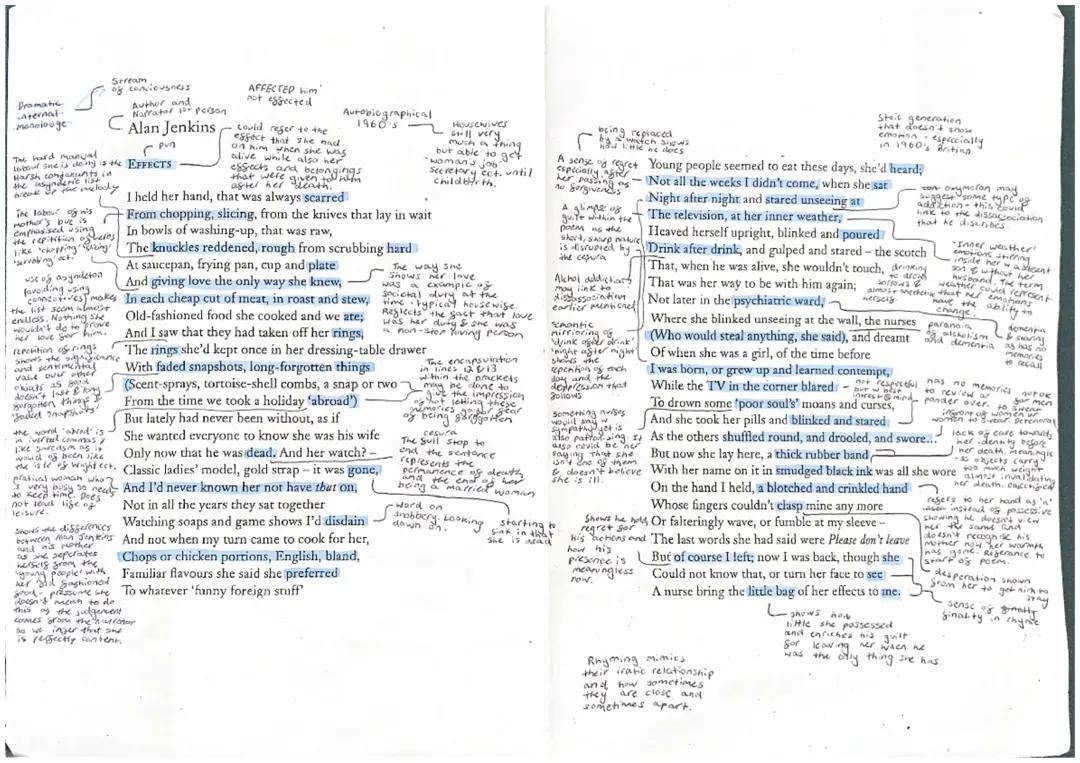 Stream
of conciousness
Dramatic
internal
monolouge
Author and
Narrator 1st person
AFFECTED him
not effected
Autobiographical
1960's
Housewives
still very
much a thing
but able to get
'woman's job'
secretary ect. until
childbirth.
Alan Jenkins
pun
EFFECTS
could refer to the
effect that she had
on him when she was
alive while also her
effects and belongings
that were given to him
after her death.
The hard manual
labour she is doing is the
Harsh consonants in
the asyndetic list
break up the melody
The labour of his
mother's love is
emphasised using
the repitition of verbs
like 'chopping' 'slicing'
'scrubbing' ect.
use of asyndeton
(avoiding using
connectives) makes
the list seem almost
endless. Nothing she
wouldn't do to prove
her love for him.
repetition of rings
shows the significance
and sentimental
value over other
objects as good
doesn't last & long
forgotten things &
'faded snapshots'
the word 'abroad' is
in inverted commas &
like sarcasm as it
would of been like
the isle of wight ect.
pratical woman who
is very busy so needs
to keep time. Does
not lead life of
leisure.
shows the differences
between Alan Jenkins
and his mother
as she seperates
herself from the
'young people' with
her old fashioned
food - pressume she
doesn't mean to do
this as the judgement
comes from the narrator
so we infer that she
is perfectly content.
I held her hand, that was always scarred
From chopping, slicing, from the knives that lay in wait
In bowls of washing-up, that was raw,
The knuckles reddened, rough from scrubbing hard
At saucepan, frying pan, cup and plate
And giving love the only way she knew,
In each cheap cut of meat, in roast and stew,
Old-fashioned food she cooked and we ate;
And I saw that they had taken off her rings,
The rings she'd kept once in her dressing-table drawer
With faded snapshots, long-forgotten things
(Scent-sprays, tortoise-shell combs, a snap or two
From the time we took a holiday 'abroad')
But lately had never been without, as if
She wanted everyone to know she was his wife
Only now that he was dead. And her watch? –
Classic ladies' model, gold strap – it was gone,
And I'd never known her not have that on,
Not in all the years they sat together
Watching soaps and game shows I'd disdain
And not when my turn came to cook for her,
Chops or chicken portions, English, bland,
Familiar flavours she said she preferred
To whatever 'funny foreign stuff'
The way she
shows her love
was a example of
societal duty at the
time 'typical' housewife.
Reflects the fact that love
was her duty & she was
a non-stop loving person
The encapsulation
in lines 12 & 13
within the brackets
may be done to
give the impression
of letting these
memories go for fear
of being forgotten
cesura
The full stop to
end the sentence
represents the
permanence of death
and the end of her
being a married woman
word on
snobbery. Looking
down on.
starting to
sink in that
she is dead
being replaced
by a watch shows
how little he does
A sense of regret
especially after
her passing as
no forgiveness
A glimpse of
guilt within the
poem as the
short, sharp nature
is disrupted by
the cesura
Alchol addiction
may link to
dissassociation
earlier mentioned
semantic
mirroring of
'drink after drink'
'night after night'
shows the
repetition of each
day and the
depression that
follows
something nurses
would say w
sympathy yet is
also patronising. It
also could be her
saying that she
isn't one of them
& doesn't believe
she is ill.
Shows he holds
regret for
his actions and
how his
presence is
meaningless
now.
Stoic generation
that doesn't show
emotion - especially
in 1960's British
Young people seemed to eat these days, she'd heard;
Not all the weeks I didn't come, when she sat
Night after night and stared unseeing at
The television, at her inner weather,
Heaved herself upright, blinked and poured
Drink after drink, and gulped and stared – the scotch
That, when he was alive, she wouldn't touch,
That was her way to be with him again;
Not later in the psychiatric ward,
Where she blinked unseeing at the wall, the nurses
(Who would steal anything, she said), and dreamt
Of when she was a girl, of the time before
I was born, or grew up and learned contempt,
While the TV in the corner blared
To drown some 'poor soul's' moans and curses,
And she took her pills and blinked and stared
As the others shuffled round, and drooled, and swore...
But now she lay here, a thick rubber band
With her name on it in smudged black ink was all she wore
On the hand I held, a blotched and crinkled hand
Whose fingers couldn't clasp mine any more
Or falteringly wave, or fumble at my sleeve –
The last words she had said were Please don't leave
But of course I left; now I was back, though she
Could not know that, or turn her face to see
A nurse bring the little bag of her effects to me.
oxymoron may
suggest some type of
addiction - this could
link to the dissassociation
that he discribes.
'Inner weather'
emotions stirring
inside her w absent
son & without her
husband. The term
weather could represent
almost that her emotions
have the ability to
change.
drinking
to drown
sorrows &
herself.
paranoia
of alcholism
and dementia
dementia
as has no
memories
to recall
not respectful
has no memories
to review or
pander over.
not ok
for men
to swear
infront of women or
women to swear.
lack of care towards
her identity before
her death. meaningle
-ss objects carry
too much weight
almost invalidating
her death. objectified
refers to her hand as 'a'
instead of possessive
showing he doesn't view
her the same and
doesn't recognise his
mother now her warmth
has gone. Referance to
start of poem.
desperation shown
from her to get him to
stay
sense of
finality in rhyme
shows how
little she possessed
and enriches his guilt
for leaving her when he
was the only thing she has.
Rhyming mimics
their iratic relationship
and how sometimes
they are close and
sometimes apart.